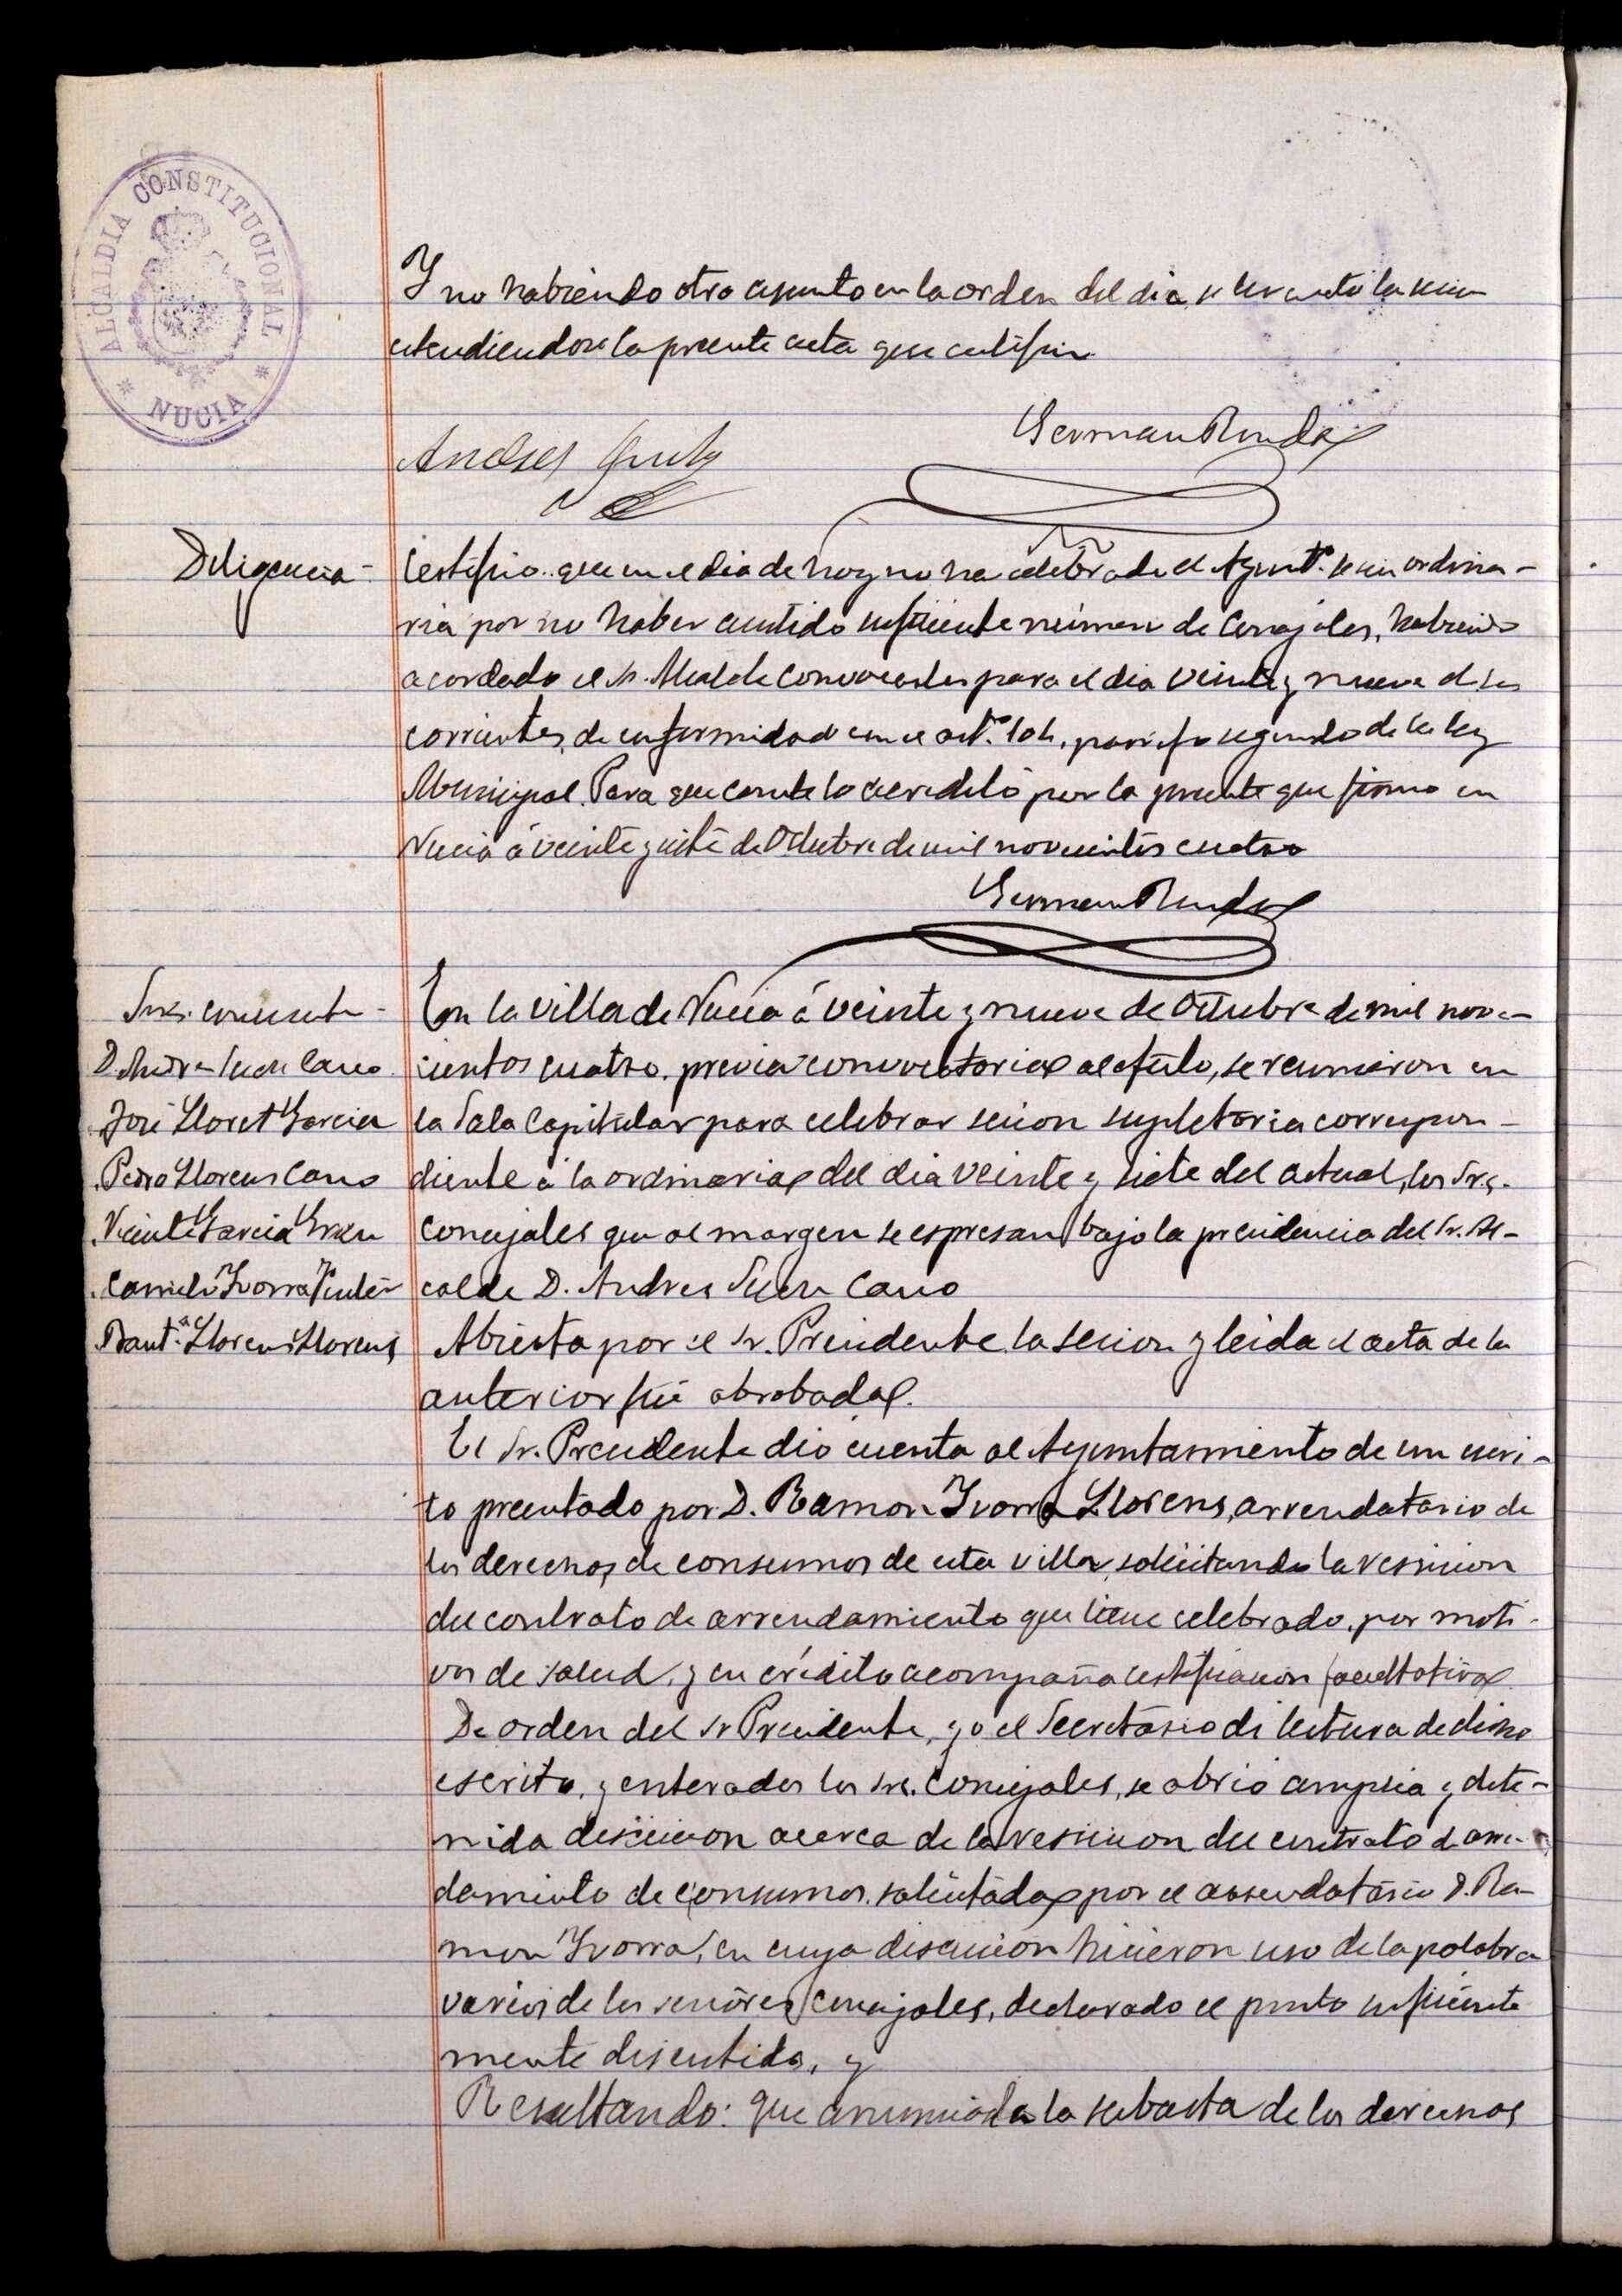 ALCALDIA CONSTITUCIONAL
* NUCIA *
Y no habiendo otro asunto en la orden del dia, se levantó la sesion
estendiendose la presente acta que certifico.
Andres
German
Diligencia-
Certifico: que en el dia de hoy no ha celebrado el Ayunt.º sesion ordina-
ria por no haber asistido suficiente número de Concejales, habiendo
acordado el Sr. Alcalde convocarles para el dia veinte y nueve de los
corrientes, de conformidad con el art.º 104, parrafo segundo de la ley
Municipal. Para que conste lo acredito por la presente que firmo en
Nucia á veinte y siete de Octubre de mil novecientos cuatro
German
Sres. concurrentes-
D. Andres Cano
José Lloret Garcia
Pedro Llorens Cano
Vicente Garcia
Camilo Yvorra
Baut.ª Llorens Llorens
En la villa de Nucia á veinte y nueve de Octubre de mil nove-
cientos cuatro, previa convocatoria al efecto, se reunieron en
la Sala Capitular para celebrar sesion supletoria correspon-
diente á la ordinaria del dia veinte y siete del actual, los Srs.
concejales que al margen se espresan bajo la presidencia del Sr. Al-
calde D. Andres Cano
Abierta por el Sr. Presidente la sesion y leida el acta de la
anterior fué abrobada.
El Sr. Presidente dió cuenta al Ayuntamiento de un escri-
to presentado por D. Ramon Yvorra Llorens, arrendatario de
los derechos de consumos de esta villa, solicitando la rescision
del contrato de arrendamiento que tiene celebrado, por moti-
vos de salud, y en crédito acompaña certificacion facultativa.
De orden del Sr Presidente, yo el Secretario di lectura de dicho
escrito, y enterados los Sres. Concejales, se abrió amplia y dete-
nida discusion acerca de la rescision del contrato de arren-
damiento de consumos, solicitada por el arrendatario D. Ra-
mon Yvorra, en cuya discusion hicieron uso de la palabra
varios de los señores Concejales, declarado el punto suficiente
mente discutido, y
Resultando: que anunciada la subasta de los derechos